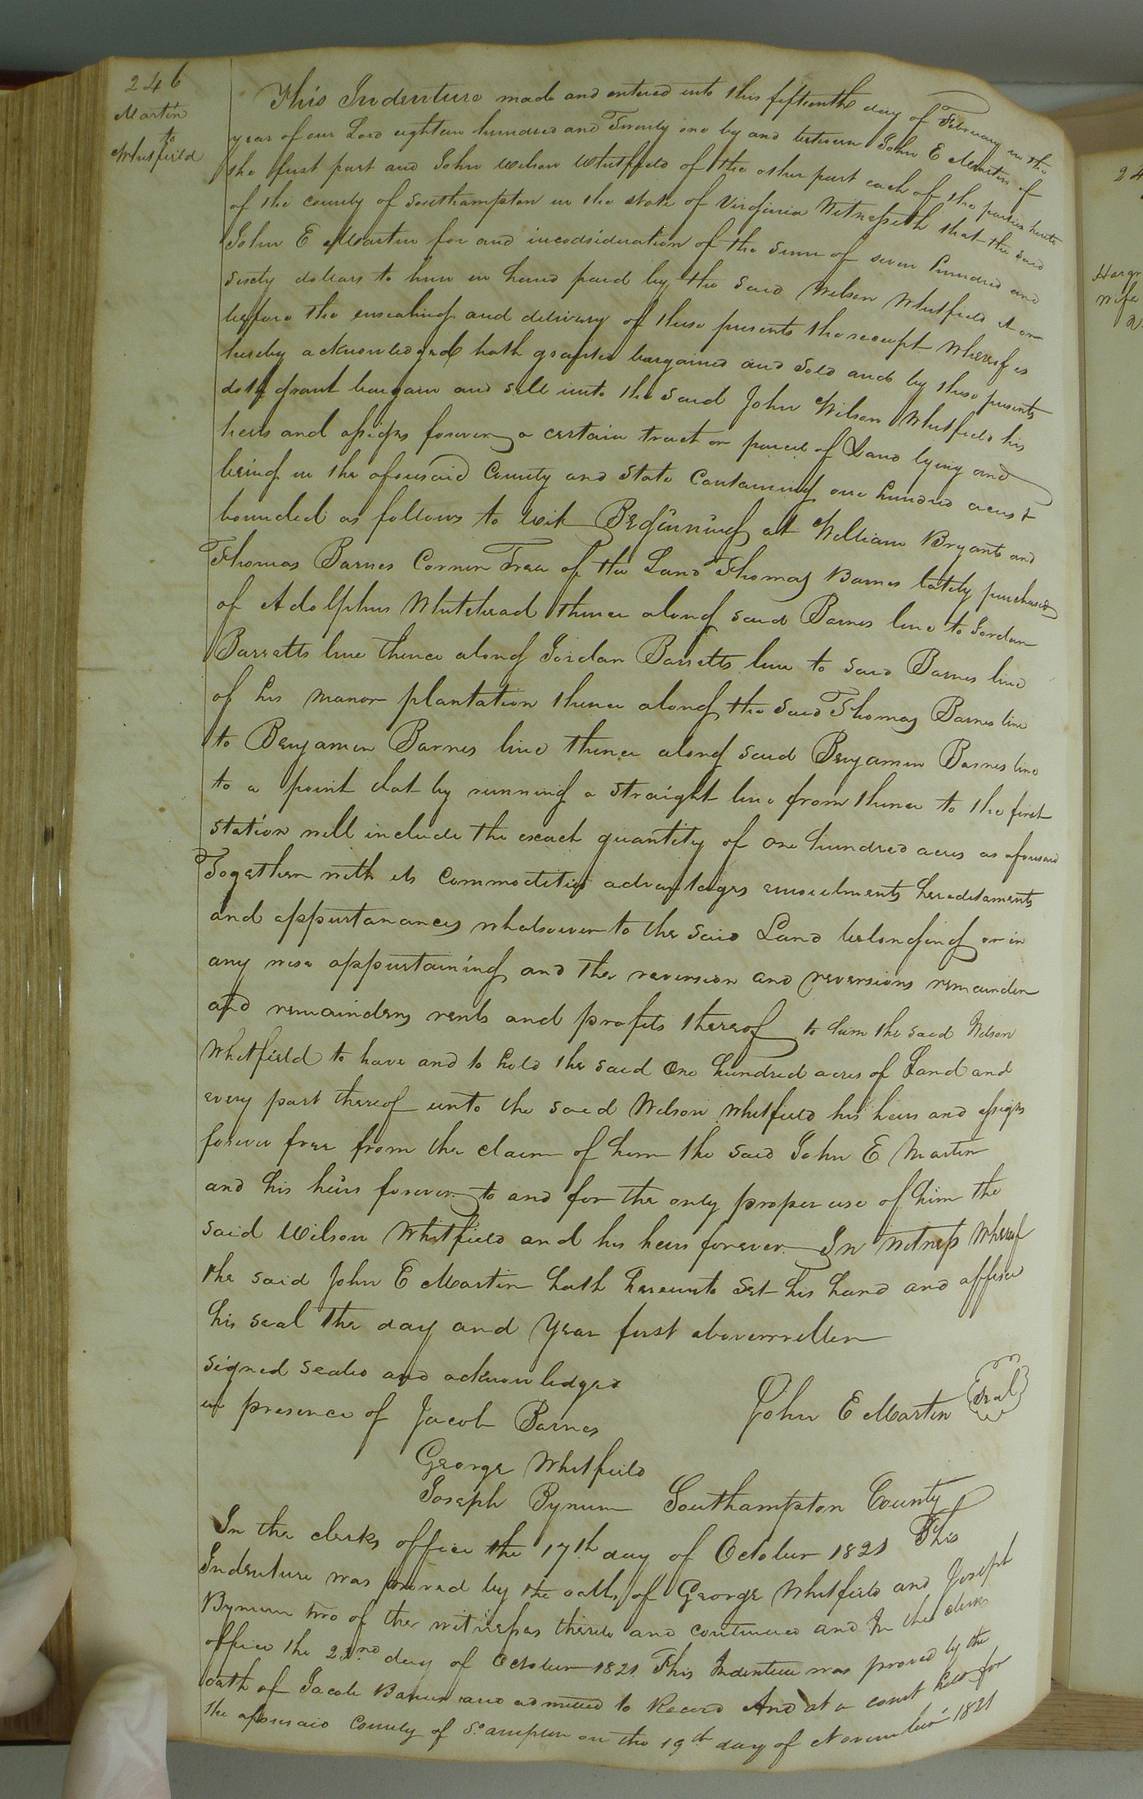 246
Martin
to
Whitfield
This Indenture made and entered into this fifteenth day of February in the
year of our Lord eighteen hundred and Twenty one by and between John E Martin of
the first part and John Wilson Whitfield of the other part each of the parties hereto
of the county of Southampton in the state of Virginia Witnesseth that the said
John E Martin for and inconsideration of the sum of seven hundred and
sixty dollars to him in hand paid by the said Wilson Whitfield at or
before the ensealing and delivery of these presents the receipt whereof is
hereby acknowledged hath granted bargained and sold and by these presents
doth grant bargain and sell unto the said John Wilson Whitfield his
heirs and assigns forever a certain tract or parcel of Land lying and
being in the aforesaid County and State Containing one hundred acres &
bounded as follows to wit Beginning at William Bryants and
Thomas Barnes Corner Tree of the Land Thomas Barnes lately purchased
of Adolphus Whitehead thence along said Barnes line to Jordan
Barretts line thence along Jordan Barretts line to said Barnes line
of his manor plantation thence along the said Thomas Barnes line
to Benjamin Barnes line thence along said Benjamin Barnes line
to a point that by running a straight line from thence to the first
station will include the exact quantity of one hundred acres as aforesaid
Together with its Commodities advantages emoulments hereditaments
and appurtanances whatsoever to the said Land belonging or in
any wise appurtaining and the reversion and reversions remainder
and remainders rents and profits thereof to him the said Wilson
Whitfield to have and to hold the said One hundred acres of Land and
every part thereof unto the said Wilson Whitfield his heirs and assigns
forever free from the claim of him the said John E Martin
and his heirs forever to and for the only proper use of him the
said Wilson Whitfield and his heirs forever In Witness Whereof
the said John E Martin hath hereunto set his hand and affixed
his seal the day and Year first abovewritten
signed sealed and acknowledged
in presence of Jacob Barnes
John E Martin seal
George Whitfield
Joseph Bynum Southampton County
In the clerks office the 17th day of October 1821 This
Indenture was proved by the oaths of George Whitfield and Joseph
Bynum two of the witnesses thereto and continued and In the clerks
office the 22nd day of October 1821 This Indenture was proved by the
oath of Jacob Barnes and admitted to Record And at a court held for
the aforesaid County of So.ampton on the 19th day of November 1821
24
Hargr
wife